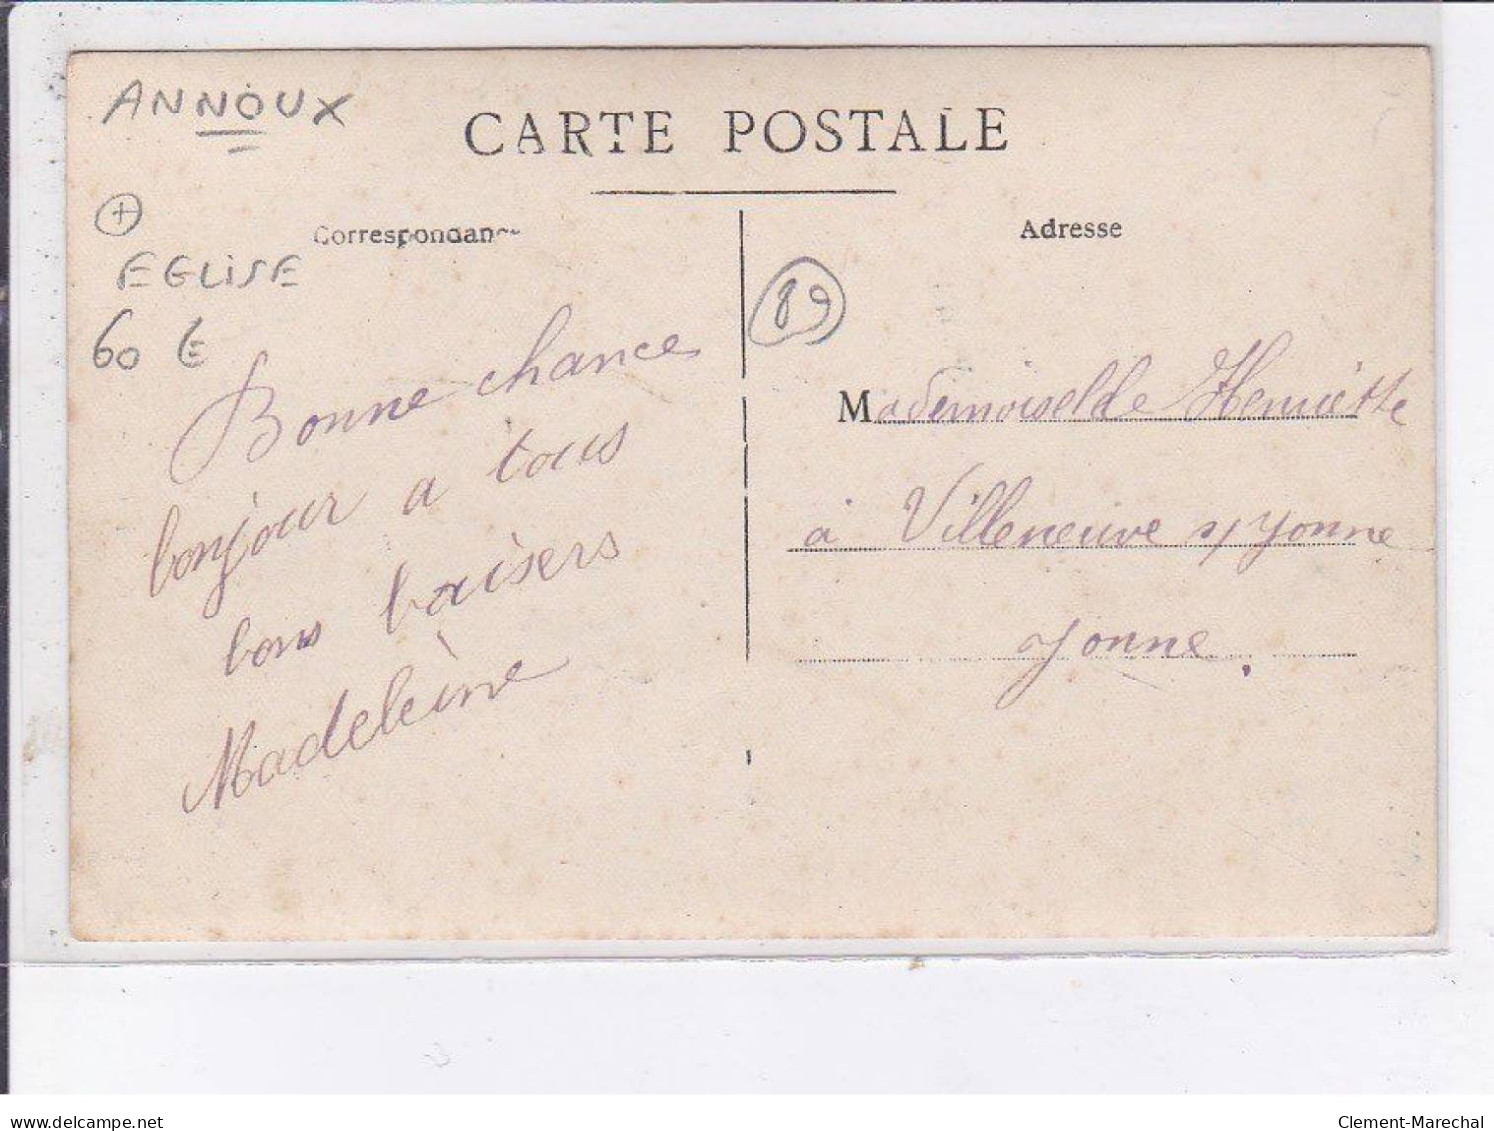 ANNOUX
CARTE POSTALE
+
Correspondance
Adresse
EGLISE
89
60 €
Bonne chance
Mademoiselle Henriette
bonjour a tous
à Villeneuve s/ Yonne
bons baisers
Yonne.
Madeleine
delcampe.net
Clement-Marechal